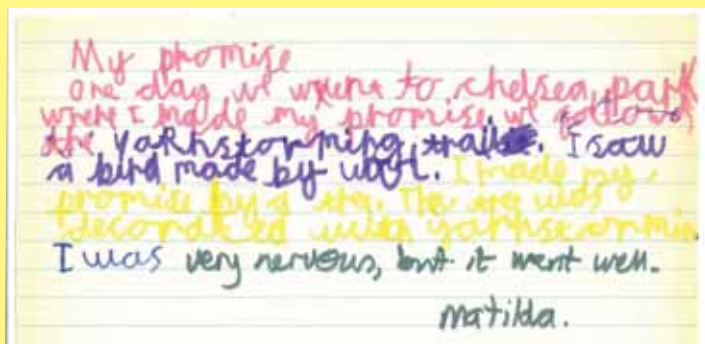 My promise
one day we went to chelsea park
where I made my promise we follow
the yarnstorming trail. I saw
a bird made by wool. I made my
promise by a tree. The tree was
decorated with yarnstormin
I was very nervous, but it went well.
Matilda.